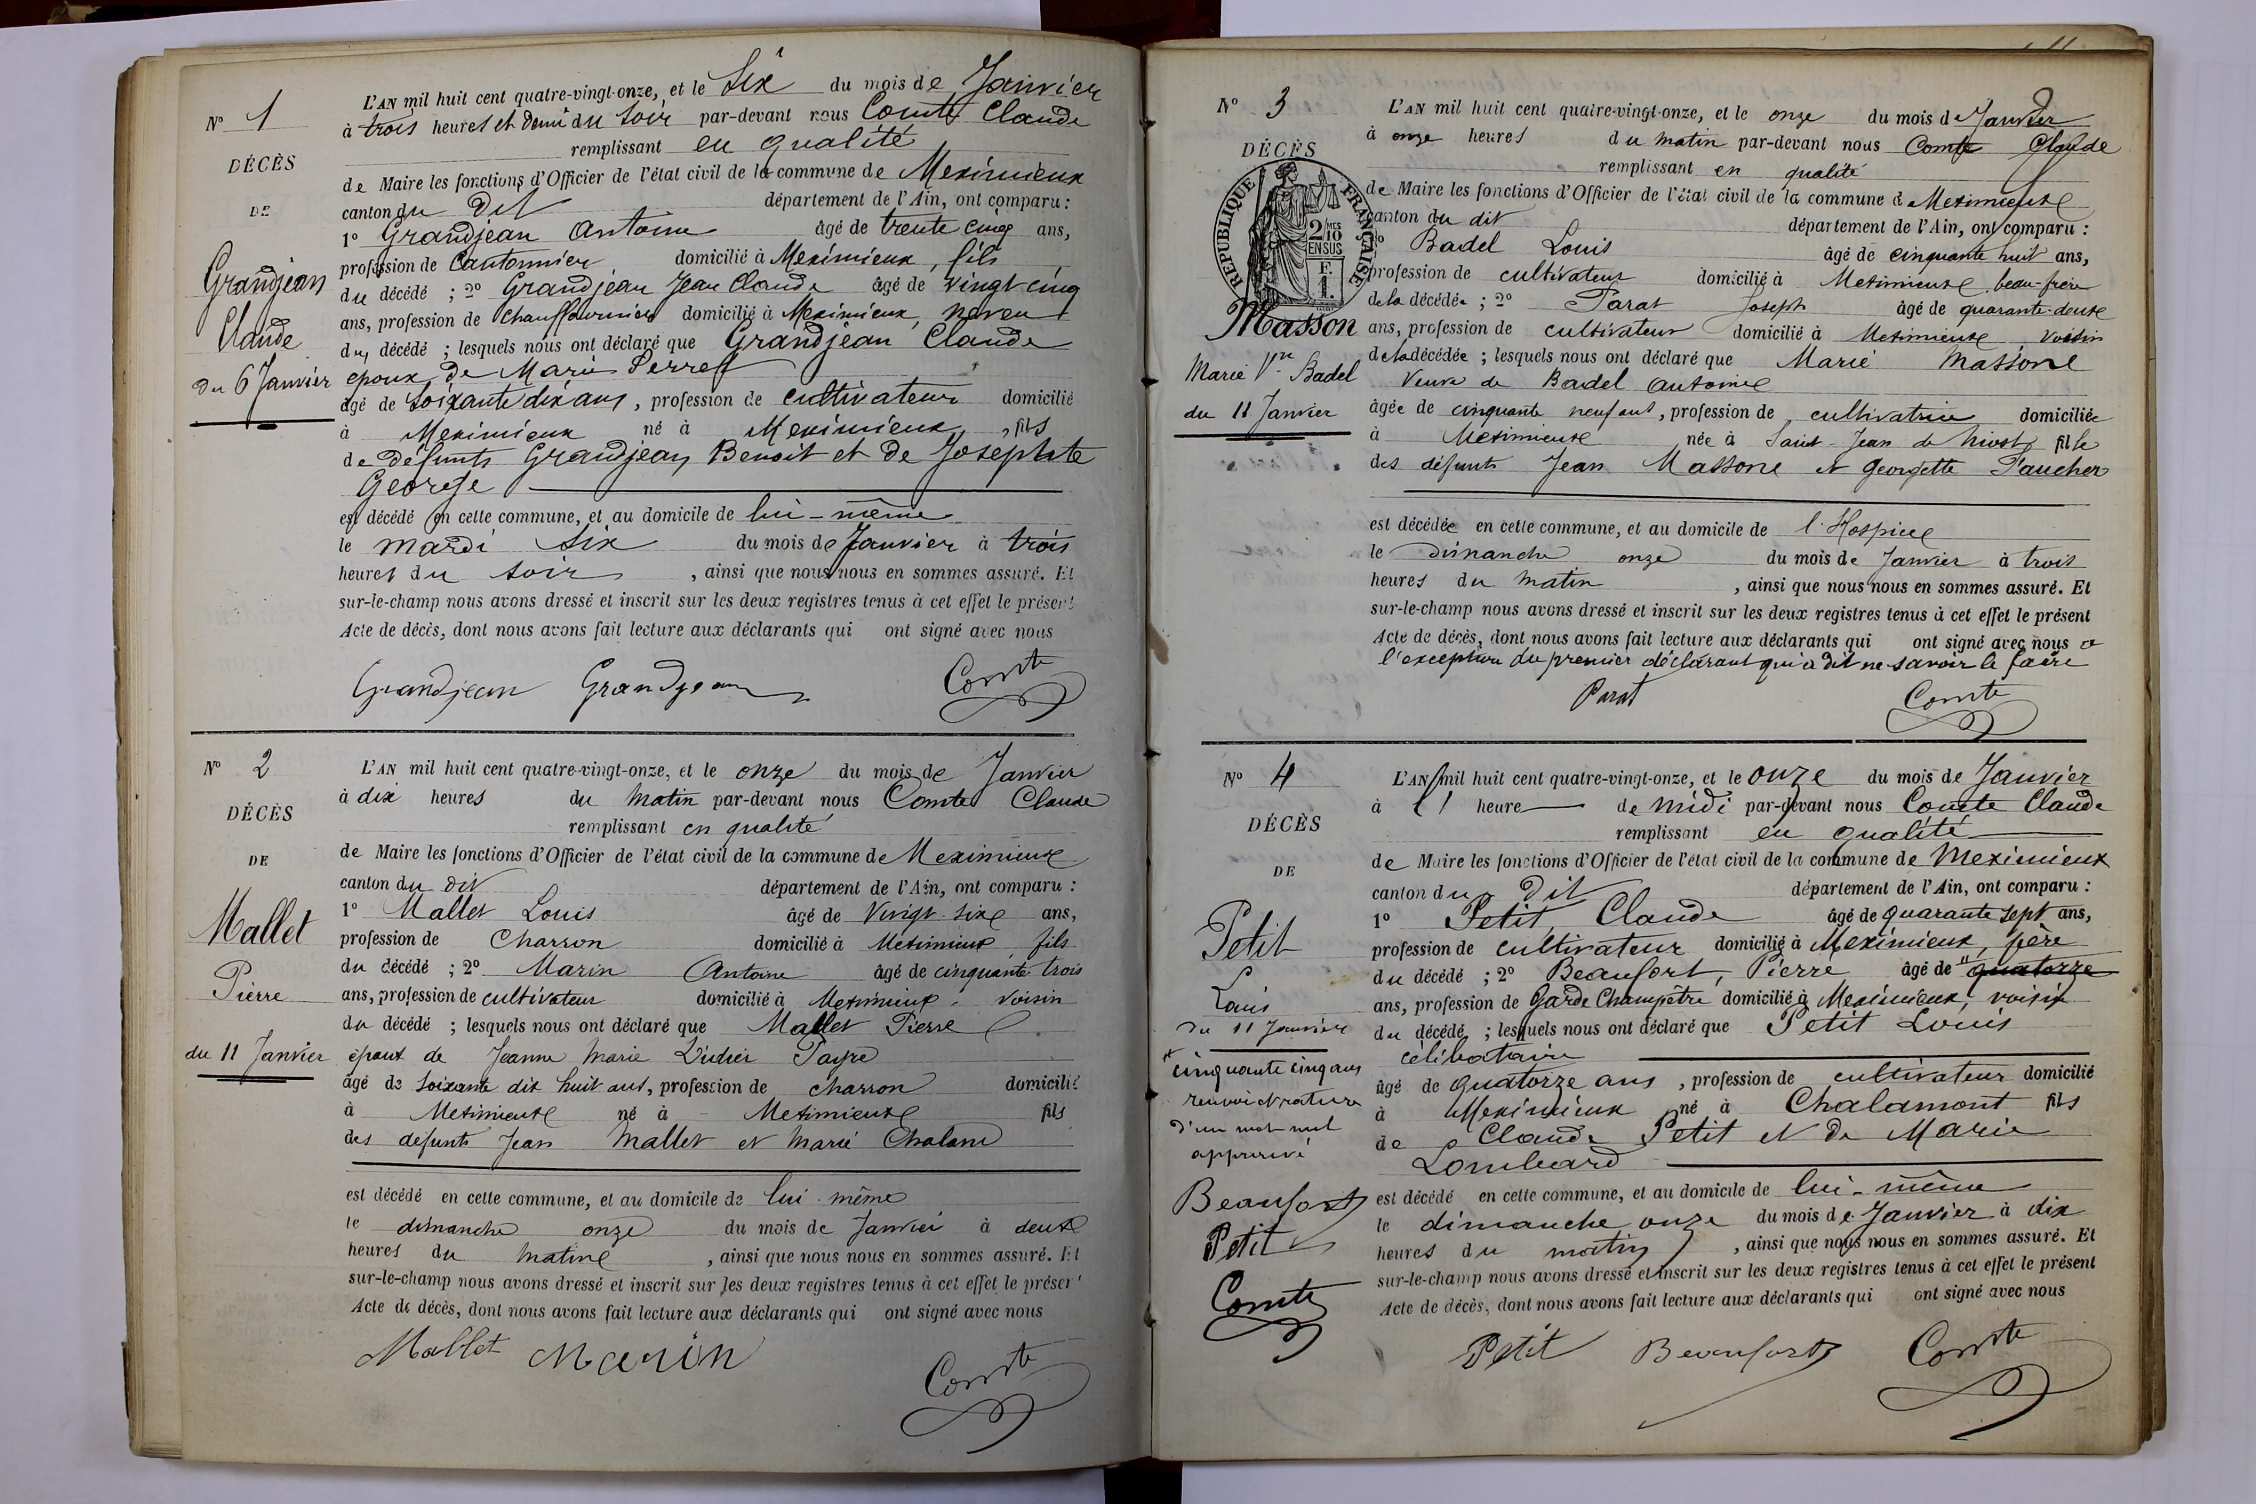 N° 1
DÉCÈS
DE
Grandjean
Claude
du 6 Janvier
L'AN mil huit cent quatre-vingt-onze, et le Six du mois de Janvier
à trois heures et demi du soir par-devant nous Comte Claude
remplissant en qualité
de Maire les fonctions d'Officier de l'état civil de la commune de Meximieux
canton du dit département de l'Ain, ont comparu :
1° Grandjean Antoine âgé de trente cinq ans,
profession de Cantonnier domicilié à Meximieux, fils
du décédé ; 2° Grandjean Jean Claude âgé de vingt cinq
ans, profession de Chauffournier domicilié à Meximieux, neveu
du décédé ; lesquels nous ont déclaré que Grandjean Claude
époux de Marie Perret
âgé de soixante dix ans, profession de cultivateur domicilié
à Meximieux né à Meximieux, fils
de défunts Grandjean Benoit et de Josephte
George
est décédé en cette commune, et au domicile de lui-même
le mardi six du mois de Janvier à trois
heures du soir, ainsi que nous nous en sommes assuré. Et
sur-le-champ nous avons dressé et inscrit sur les deux registres tenus à cet effet le présent
Acte de décès, dont nous avons fait lecture aux déclarants qui ont signé avec nous
Grandjean Grandjean Comte
N° 2
DÉCÈS
DE
Mallet
Pierre
du 11 Janvier
L'AN mil huit cent quatre-vingt-onze, et le onze du mois de Janvier
à dix heures du matin par-devant nous Comte Claude
remplissant en qualité
de Maire les fonctions d'Officier de l'état civil de la commune de Meximieux
canton du dit département de l'Ain, ont comparu :
1° Mallet Louis âgé de Vingt-six ans,
profession de Charron domicilié à Meximieux, fils
du décédé ; 2° Marin Antoine âgé de cinquante trois
ans, profession de cultivateur domicilié à Meximieux - voisin
du décédé ; lesquels nous ont déclaré que Mallet Pierre
époux de Jeanne Marie Payre
âgé de soixante dix huit ans, profession de charron domicilié
à Meximieux né à Meximieux fils
des défunts Jean Mallet et Marie Chaland
est décédé en cette commune, et au domicile de lui-même
le dimanche onze du mois de Janvier à deux
heures du matin, ainsi que nous nous en sommes assuré. Et
sur-le-champ nous avons dressé et inscrit sur les deux registres tenus à cet effet le présent
Acte de décès, dont nous avons fait lecture aux déclarants qui ont signé avec nous
Mallet Marin Comte
N° 3
DÉCÈS
RÉPUBLIQUE FRANÇAISE
2 MES
10
EN SUS
F.
1.
Masson
Marie Vve Badel
du 11 Janvier
L'AN mil huit cent quatre-vingt-onze, et le onze du mois de Janvier
à onze heures du matin par-devant nous Comte Claude
remplissant en qualité
de Maire les fonctions d'Officier de l'état civil de la commune de Meximieux
canton du dit département de l'Ain, ont comparu :
1° Badel Louis âgé de cinquante huit ans,
profession de cultivateur domicilié à Meximieux, beau-frère
de la décédée ; 2° Parat Joseph âgé de quarante-deux
ans, profession de cultivateur domicilié à Meximieux voisin
de la décédée ; lesquels nous ont déclaré que Marie Masson
Veuve de Badel Antoine
âgée de cinquante neuf ans, profession de cultivatrice domiciliée
à Meximieux née à Saint-Jean de Niost, fille
des défunts Jean Masson et Georgette Paucher
est décédée en cette commune, et au domicile de l'Hospice
le dimanche onze du mois de Janvier à trois
heures du matin, ainsi que nous nous en sommes assuré. Et
sur-le-champ nous avons dressé et inscrit sur les deux registres tenus à cet effet le présent
Acte de décès, dont nous avons fait lecture aux déclarants qui ont signé avec nous à
l'exception du premier déclarant qui a dit ne savoir le faire
Parat Comte
N° 4
DÉCÈS
DE
Petit
Louis
du 11 Janvier
cinquante cinq ans
renvoi et rature
d'un mot nul
approuvé
Beaufort
Petit
Comte
L'AN mil huit cent quatre-vingt-onze, et le onze du mois de Janvier
à 1 heure de midi par-devant nous Comte Claude
remplissant en qualité
de Maire les fonctions d'Officier de l'état civil de la commune de Meximieux
canton du dit département de l'Ain, ont comparu :
1° Petit Claude âgé de quarante sept ans,
profession de cultivateur domicilié à Meximieux, père
du décédé ; 2° Beaufort, Pierre âgé de quatorze
ans, profession de Garde Champêtre domicilié à Meximieux, voisin
du décédé ; lesquels nous ont déclaré que Petit Louis
célibataire
âgé de quatorze ans, profession de cultivateur domicilié
à Meximieux né à Chalamont fils
de Claude Petit et de Marie
Lombard
est décédé en cette commune, et au domicile de lui-même
le dimanche onze du mois de Janvier à dix
heures du matin, ainsi que nous nous en sommes assuré. Et
sur-le-champ nous avons dressé et inscrit sur les deux registres tenus à cet effet le présent
Acte de décès, dont nous avons fait lecture aux déclarants qui ont signé avec nous
Petit Beaufort Comte